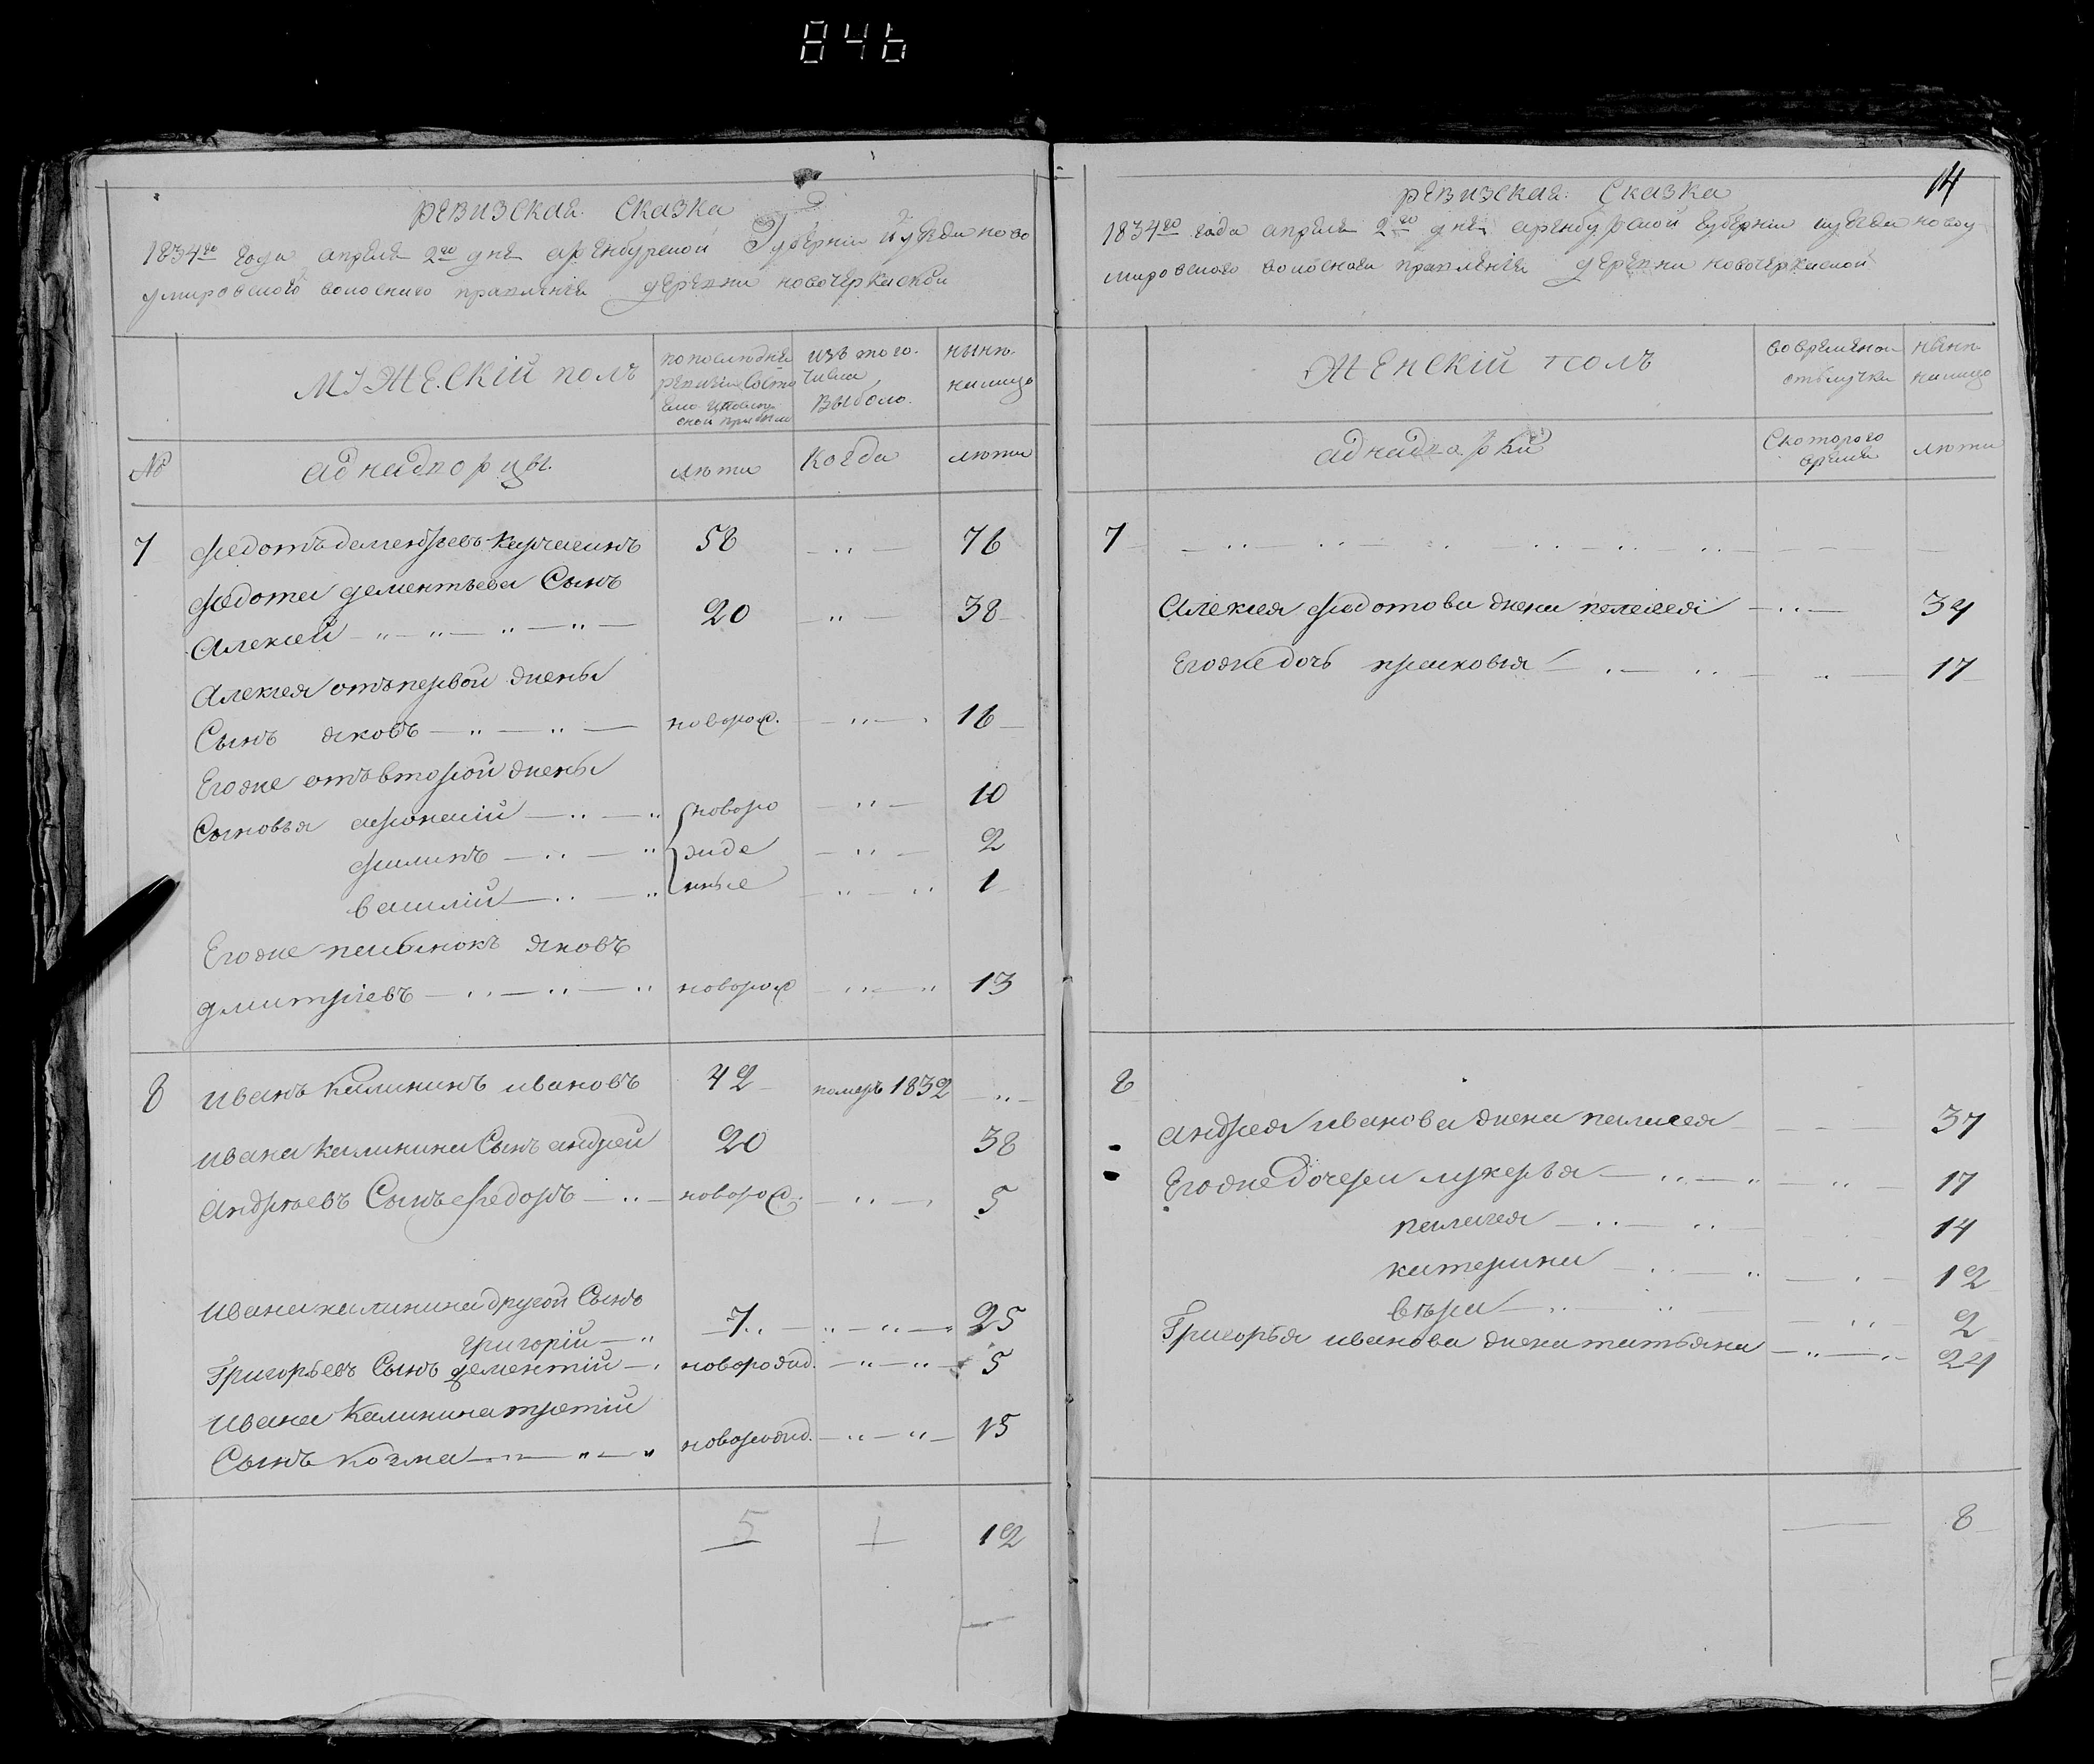 846
ревизская Сказка
1834го года апреля 2го дня аренбурской Губернии и уезда ново
умировского волосного правления деревни новочеркаской
№
мужескiй полъ
адвадворцы
лети
изъ того числа выбыло.
Когда
ныне налицо
лети
7 федотъ дементьевъ Карчагинъ 58 76
федота дементьева Сынъ
Алексей 20 38
Алексея отъ первой жены
Сынъ яковъ новорож. 16
Егоже отъ второй жены
Сыновья афонасiй новоро 10
филипъ жде 2
василiй нные 1
Егоже племянокъ яковъ
дмитрiевъ новорож 13
8 иванъ Калининъ ивановъ 42 померъ 1832
ивана калинина Сынъ андрей 20 38
андреевъ Сынъ федоръ новорож. 5
ивана калинина другой Сынъ
григорiй 7 25
Григорьевъ Сынъ дементiй новорожд. 5
ивана Калинина третiй
Сынъ козма новорожд. 15
5 1 12
14
ревизская Сказка
1834го года апреля 2го дня аренбурской губернии и уезда новоу
мировского волосного правления деревни новочеркаской
Женскiй полъ
во временой отлучки
Скоторого время
ныне налицо
лети
7
Алексея федотова жена пелагея 34
Егоже дочь прасковья 17
8
андрея иванова жена пелагея 37
Егоже Дочери лукерья 17
пелагея 14
катерина 12
вера 2
Григорья иванова жена татьяна 24
8